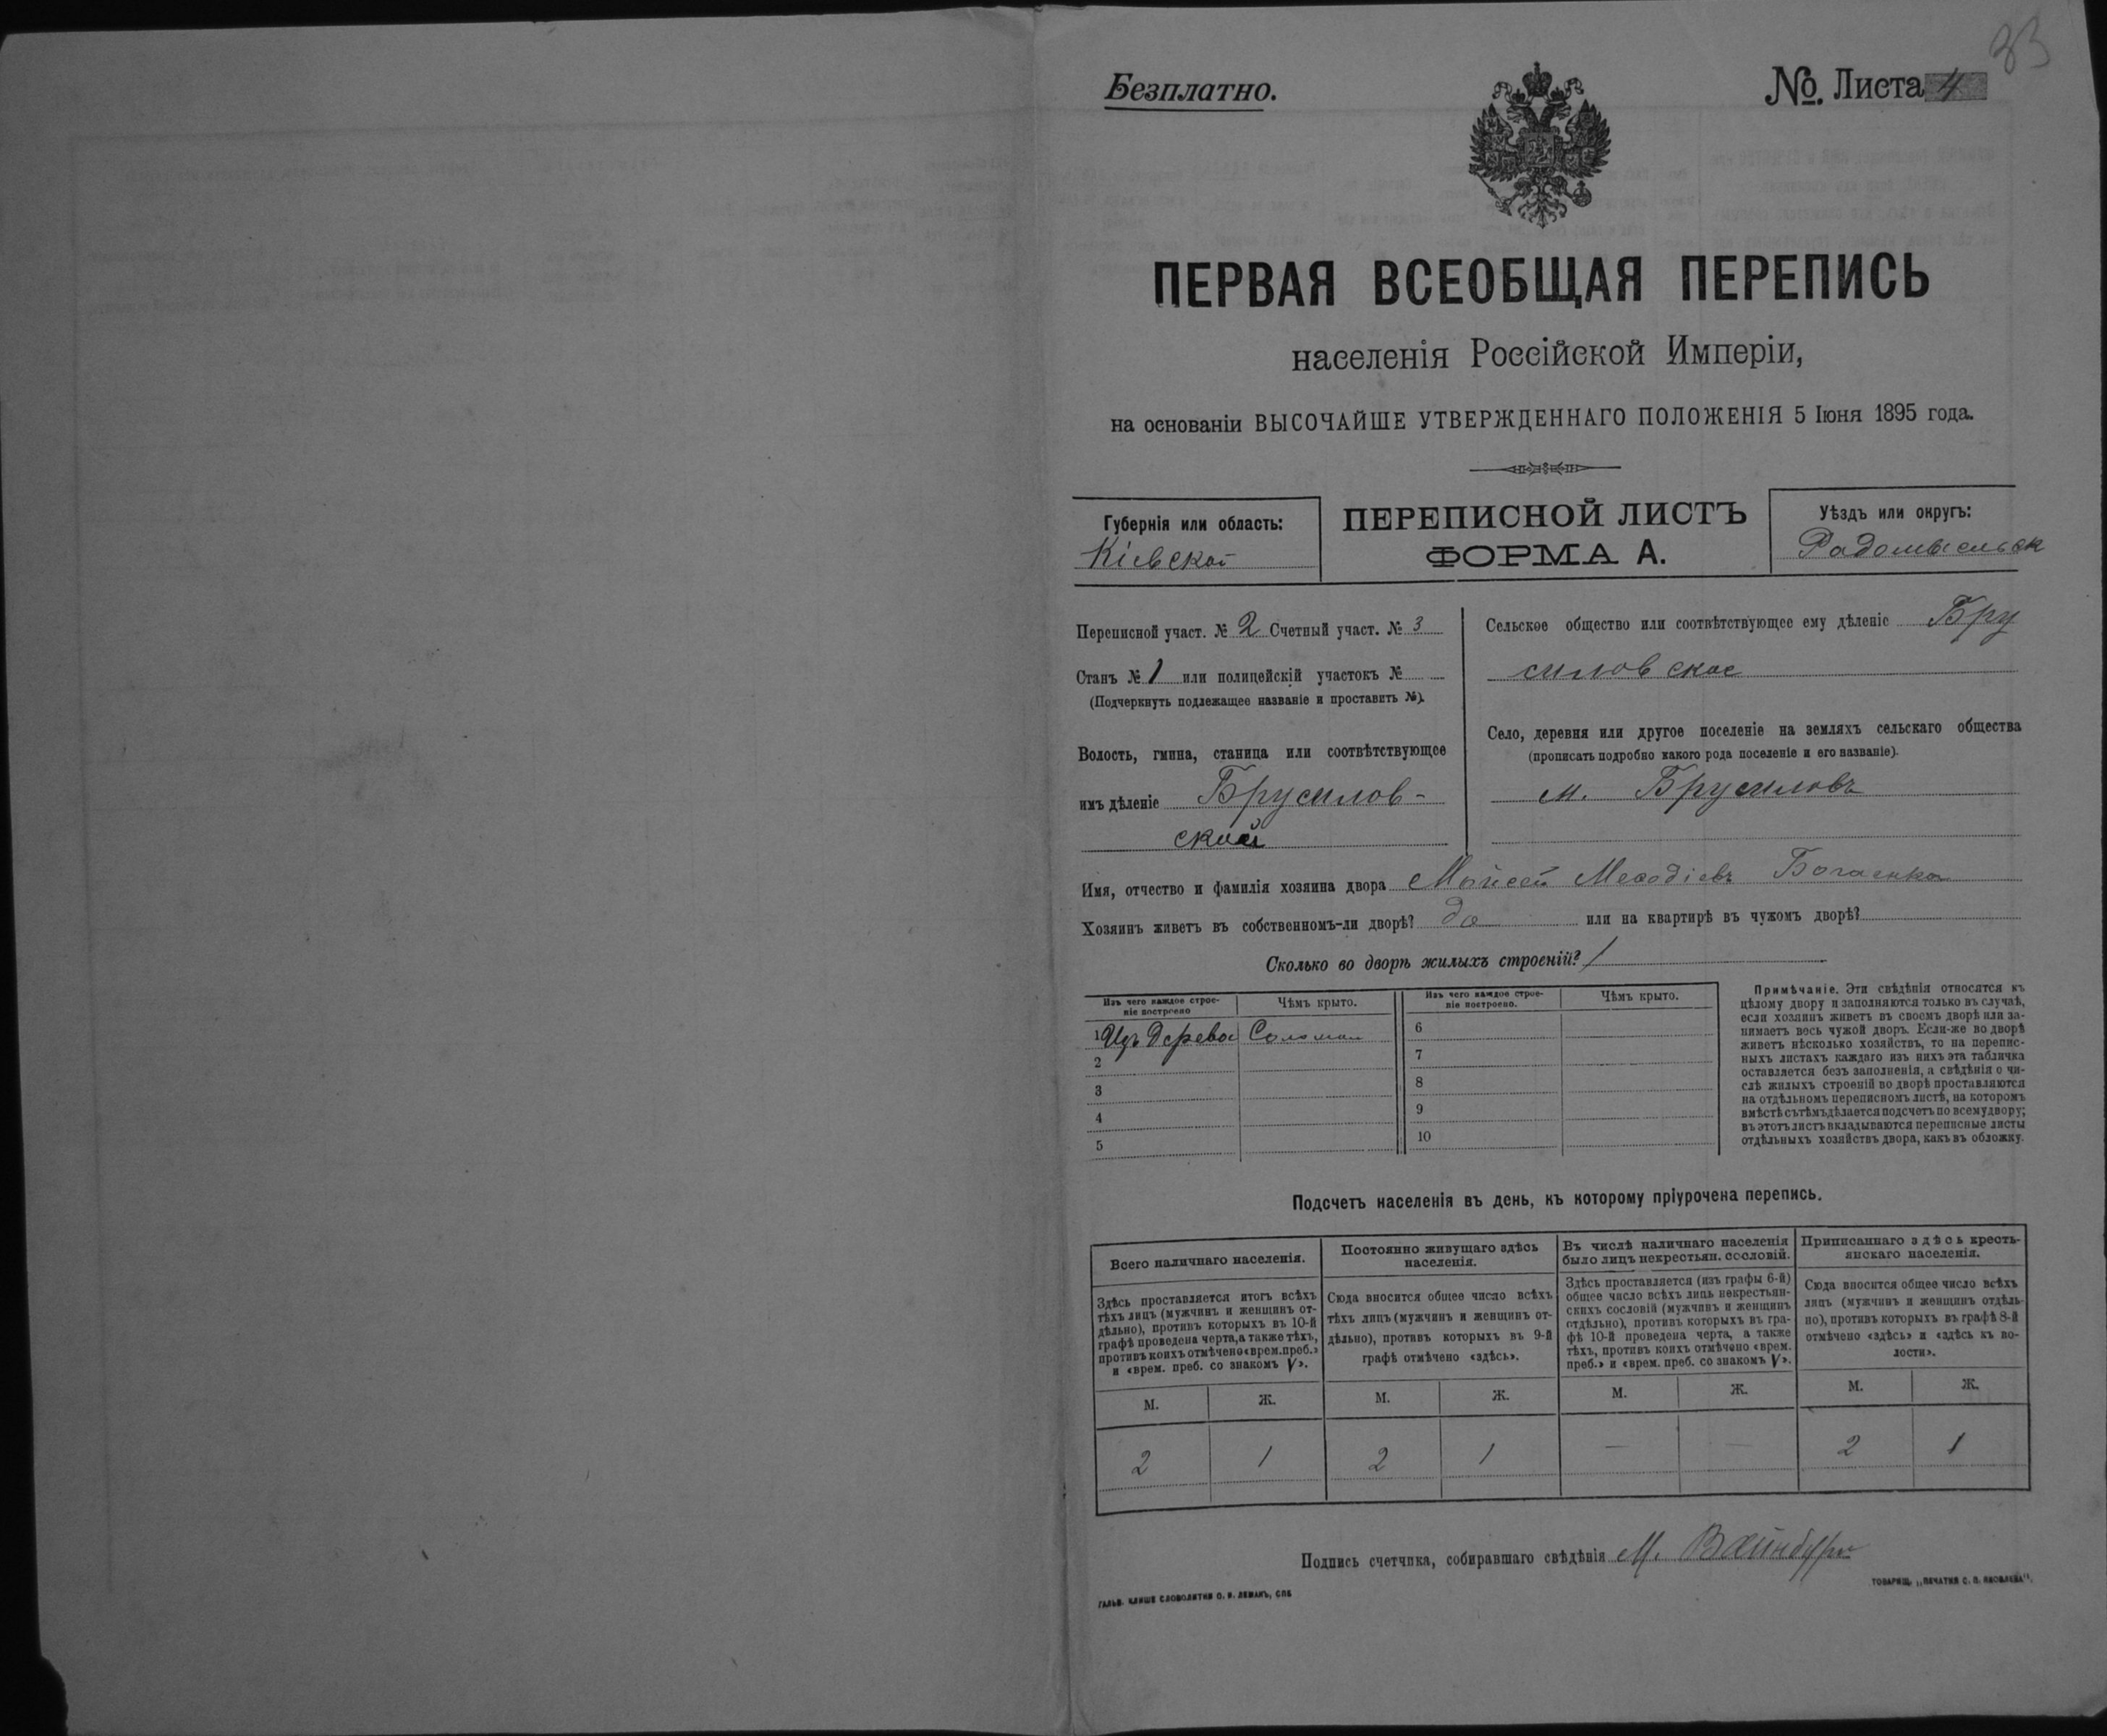 33
Безплатно.
№. Листа 4
ПЕРВАЯ ВСЕОБЩАЯ ПЕРЕПИСЬ
населенія Россійской Имперіи,
на основаніи ВЫСОЧАЙШЕ УТВЕРЖДЕННАГО ПОЛОЖЕНІЯ 5 Іюня 1895 года.
Губернія или область:
Кіевской
ПЕРЕПИСНОЙ ЛИСТЪ
ФОРМА А.
Уѣздъ или округъ:
Радомысльск
Переписной участ. № 2 Счетный участ. № 3
Станъ № 1 или полицейскій участокъ №
(Подчеркнуть подлежащее названіе и проставить №).
Волость, гмина, станица или соотвѣтствующее
имъ дѣленіе Брусилов-
ской
Сельское общество или соотвѣтствующее ему дѣленіе Бру
силовское
Село, деревня или другое поселеніе на земляхъ сельскаго общества
(прописать подробно какого рода поселеніе и его названіе).
м. Брусиловъ
Имя, отчество и фамилія хозяина двора Мойсей Меѳодіевъ
Хозяинъ живетъ въ собственномъ-ли дворѣ? да или на квартирѣ въ чужомъ дворѣ?
Сколько во дворѣ жилыхъ строеній? 1
Изъ чего каждое строе-
ніе построено
Чѣмъ крыто.
Изъ чего каждое строе-
ніе построено.
Чѣмъ крыто.
1 Изъ дерева Солома
2
3
4
5
6
7
8
9
10
Примѣчаніе. Эти свѣдѣнія относятся къ
цѣлому двору и заполняются только въ случаѣ,
если хозяинъ живетъ въ своемъ дворѣ или за-
нимаетъ весь чужой дворъ. Если-же во дворѣ
живетъ нѣсколько хозяйствъ, то на перепис-
ныхъ листахъ каждаго изъ нихъ эта табличка
оставляется безъ заполненія, а свѣдѣнія о чи-
слѣ жилыхъ строеній во дворѣ проставляются
на отдѣльномъ переписномъ листѣ, на которомъ
вмѣстѣ съ тѣмъ дѣлается подсчетъ по всему двору;
въ этотъ листъ вкладываются переписные листы
отдѣльныхъ хозяйствъ двора, какъ въ обложку.
Подсчетъ населенія въ день, къ которому пріурочена перепись.
Всего наличнаго населенія.
Здѣсь проставляется итогъ всѣхъ
тѣхъ лицъ (мужчинъ и женщинъ от-
дѣльно), противъ которыхъ въ 10-й
графѣ проведена черта, а также тѣхъ,
противъ коихъ отмѣчено «врем. преб.»
и «врем. преб. со знакомъ V».
Постоянно живущаго здѣсь
населенія.
Сюда вносится общее число всѣхъ
тѣхъ лицъ (мужчинъ и женщинъ от-
дѣльно), противъ которыхъ въ 9-й
графѣ отмѣчено «здѣсь».
Въ числѣ наличнаго населенія
было лицъ некрестьян. сословій.
Здѣсь проставляется (изъ графы 6-й)
общее число всѣхъ лицъ некрестьян-
скихъ сословій (мужчинъ и женщинъ
отдѣльно), противъ которыхъ въ гра-
фѣ 10-й проведена черта, а также
тѣхъ, противъ коихъ отмѣчено «врем.
преб.» и «врем. преб. со знакомъ V».
Приписаннаго здѣсь кресть-
янскаго населенія.
Сюда вносится общее число всѣхъ
лицъ (мужчинъ и женщинъ отдѣль-
но), противъ которыхъ въ графѣ 8-й
отмѣчено «здѣсь» и «здѣсь въ во-
лости».
М. Ж. М. Ж. М. Ж. М. Ж.
2 1 2 1 — — 2 1
Подпись счетчика, собиравшаго свѣдѣнія М. Вайнберг
ГАЛЬВ. КЛИШЕ СЛОВОЛИТНИ О. И. ЛЕМАНЪ, СПБ
ТОВАРИЩ. „ПЕЧАТНЯ С. П. ЯКОВЛЕВА".